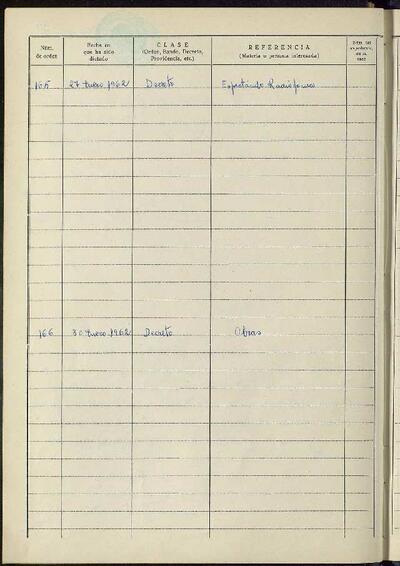 Núm. de orden
Fecha en que ha sido dictado
CLASE
(Orden, Bando, Decreto, Providencia, etc.)
REFERENCIA
(Materia o persona interesada)
165 27 Enero 1962 Decreto Espectáculo Radiofónico
166 30 Enero 1962 Decreto Obras